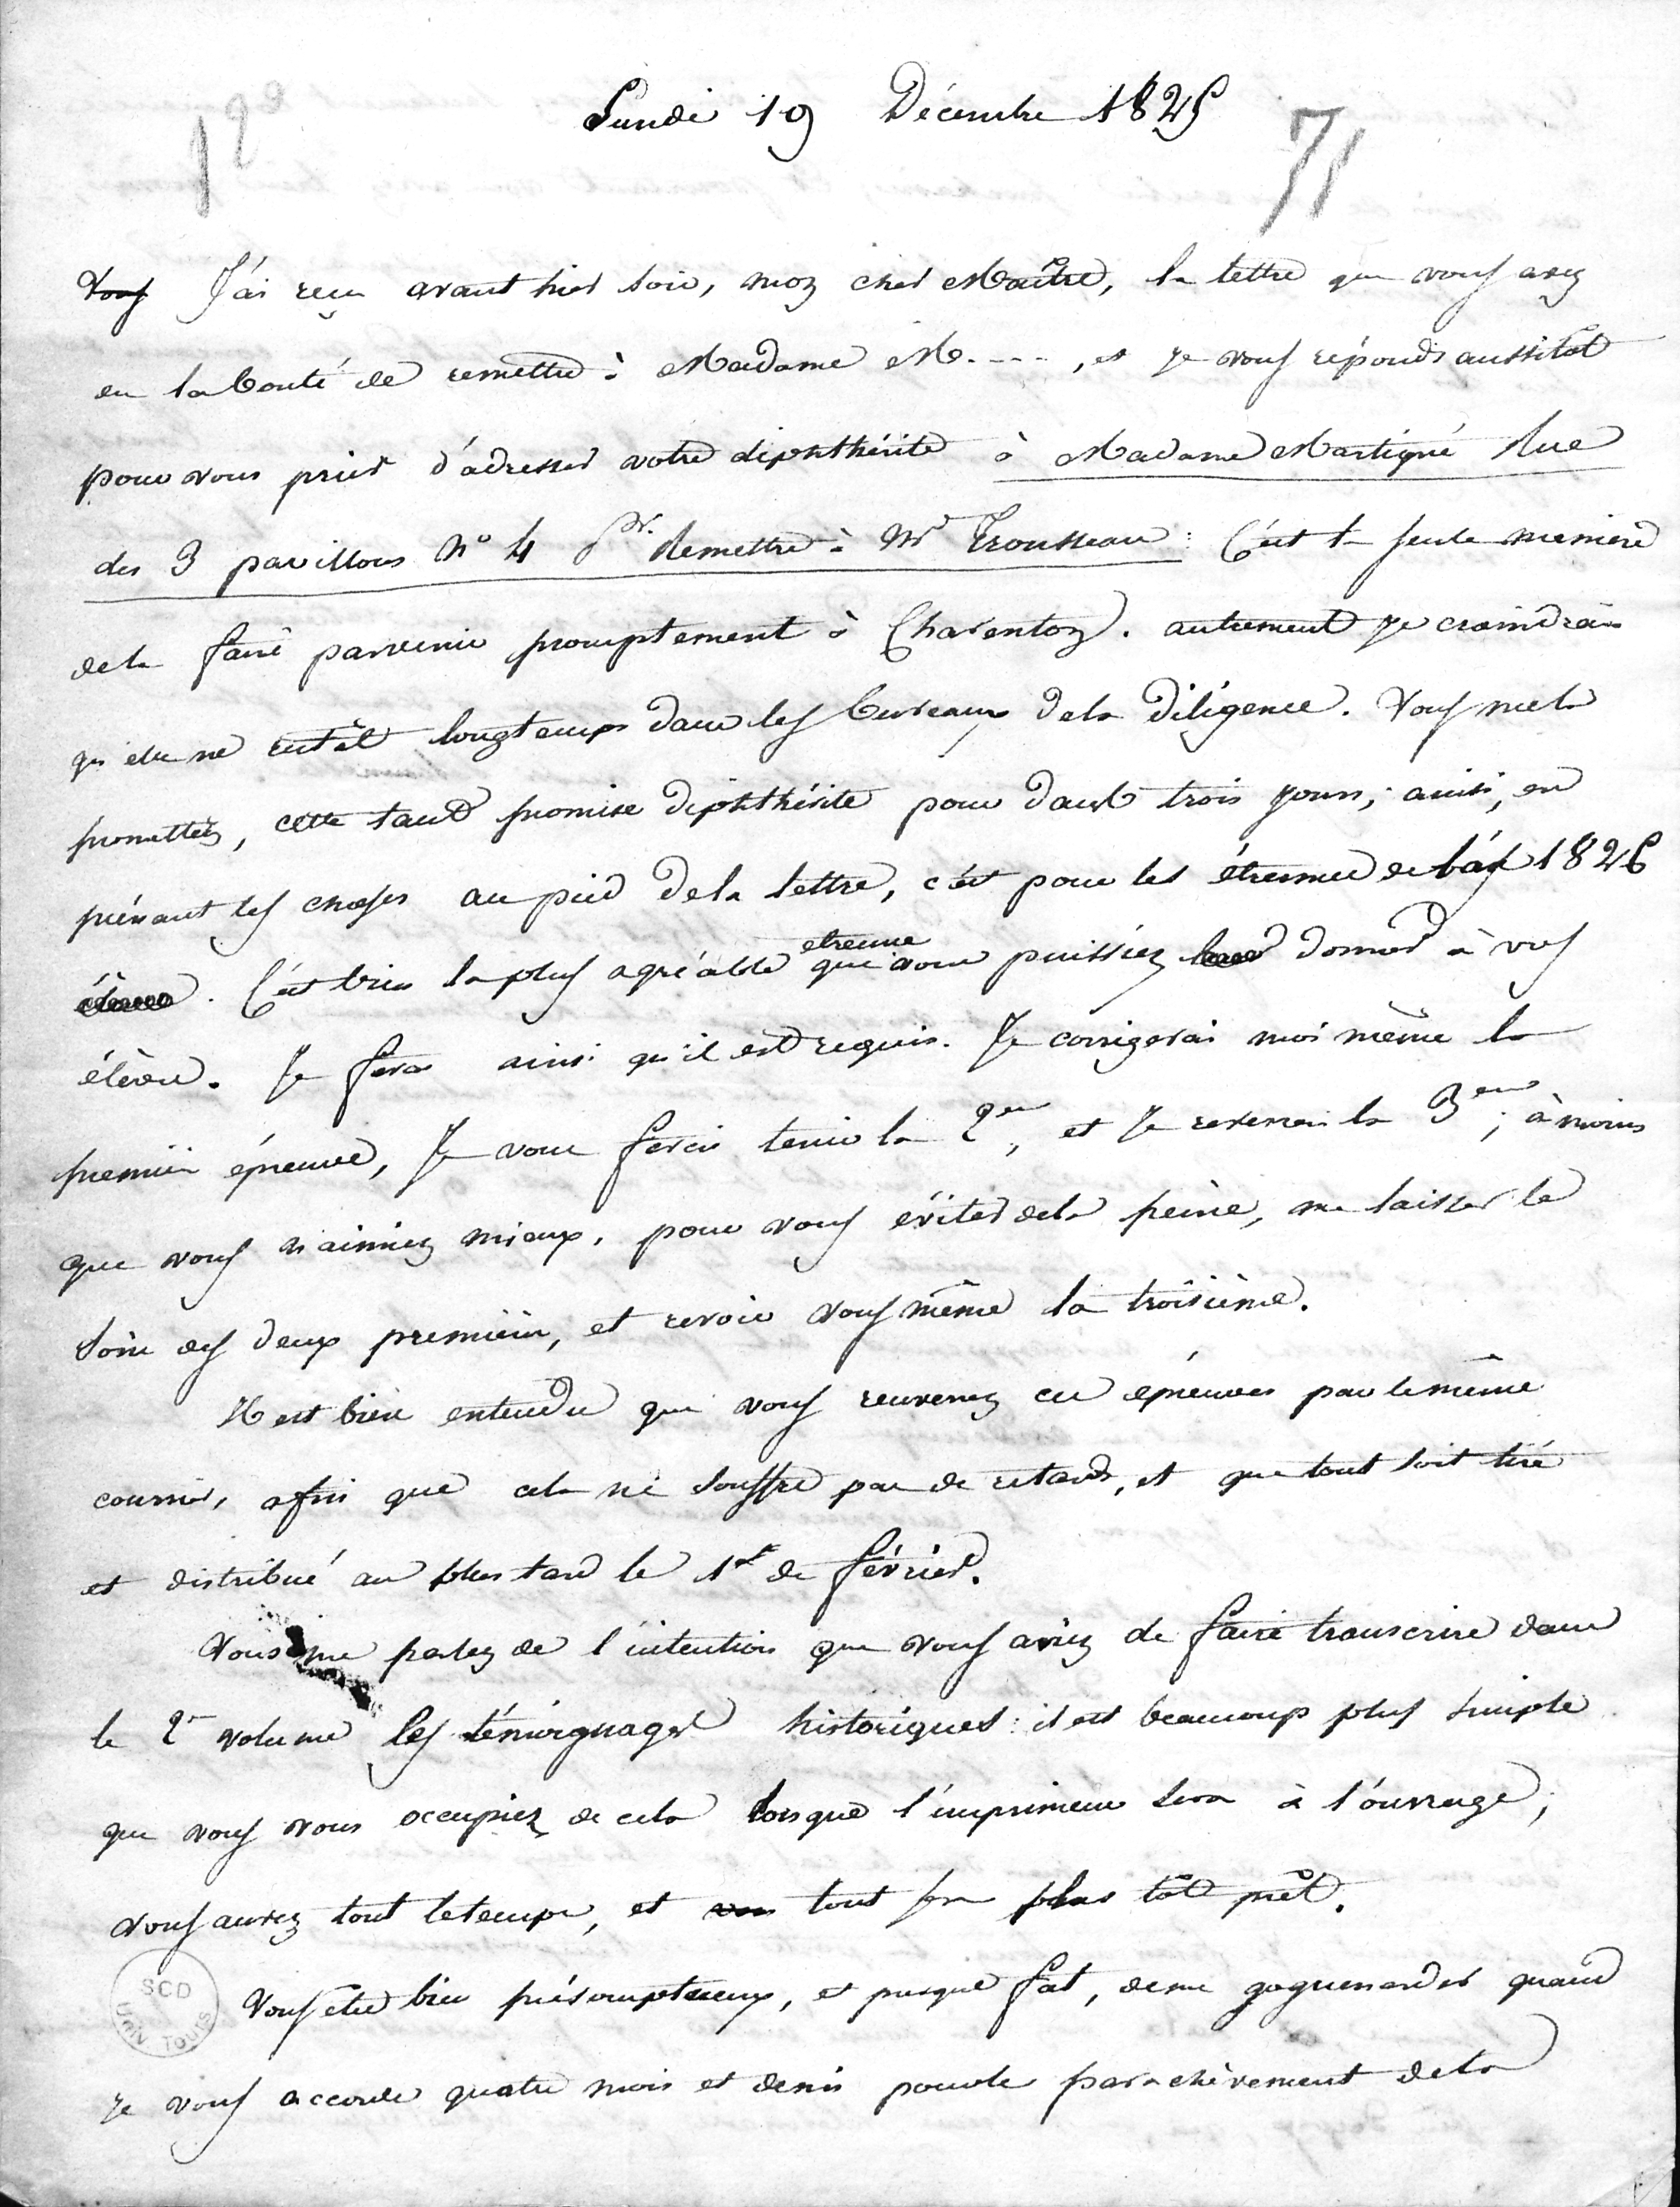 12°
Lundi 19 Décembre 1825
71
Vous J'ai reçu avant hier soir, mon cher Maître, la lettre que vous avez
eu la bonté de remettre à Madame M...., et je vous réponds aussitôt
pour vous prier d'adresser votre diphthérite à Madame Martigné Rue
des 3 pavillons N° 4 Pr. Remettre à Mr Trousseau : C'est la seule manière
de la faire parvenir promptement à Charenton. autrement je craindrais
qu'elle ne restât longtemps dans les bureaux de la Diligence. Vous me la
promettez, cette tant promise diphthérite pour dans trois jours; ainsi, en
prénant les choses au pied de la lettre, c'est pour les étrennes de l'an 1826
C'est bien la plus agréable etrenne que vous puissiez donner à vos
élèves. Je ferai ainsi qu'il est requis. Je corrigerai moi même la
premiere épreuve, Je vous ferai tenir la 2eme, et Je reverrai la 3eme; à moins
que vous n'aimiez mieux, pour vous éviter de la peine, me laisser le
soin des deux premières, et revoir vous même la troisième.
Il est bien entendu que vous renverrez ces épreuves par le même
courrier, afin que cela ne souffre pas de retard, et que tout soit tiré
et distribué au plus tard le 1er de février.
Vous me parlez de l'intention que vous aviez de faire transcrire dans
le 2e volume les témoignages historiques : il est beaucoup plus simple
que vous vous occupiez de cela lorsque l'imprimeur sera à l'ouvrage;
vous aurez tout le temps, et tout sera plus tôt prêt.
Vous êtes bien présomptueux, et presque fat, de me goguenarder quand
je vous accorde quatre mois et demi pour le parachèvement de la
SCD
Univ TOURS